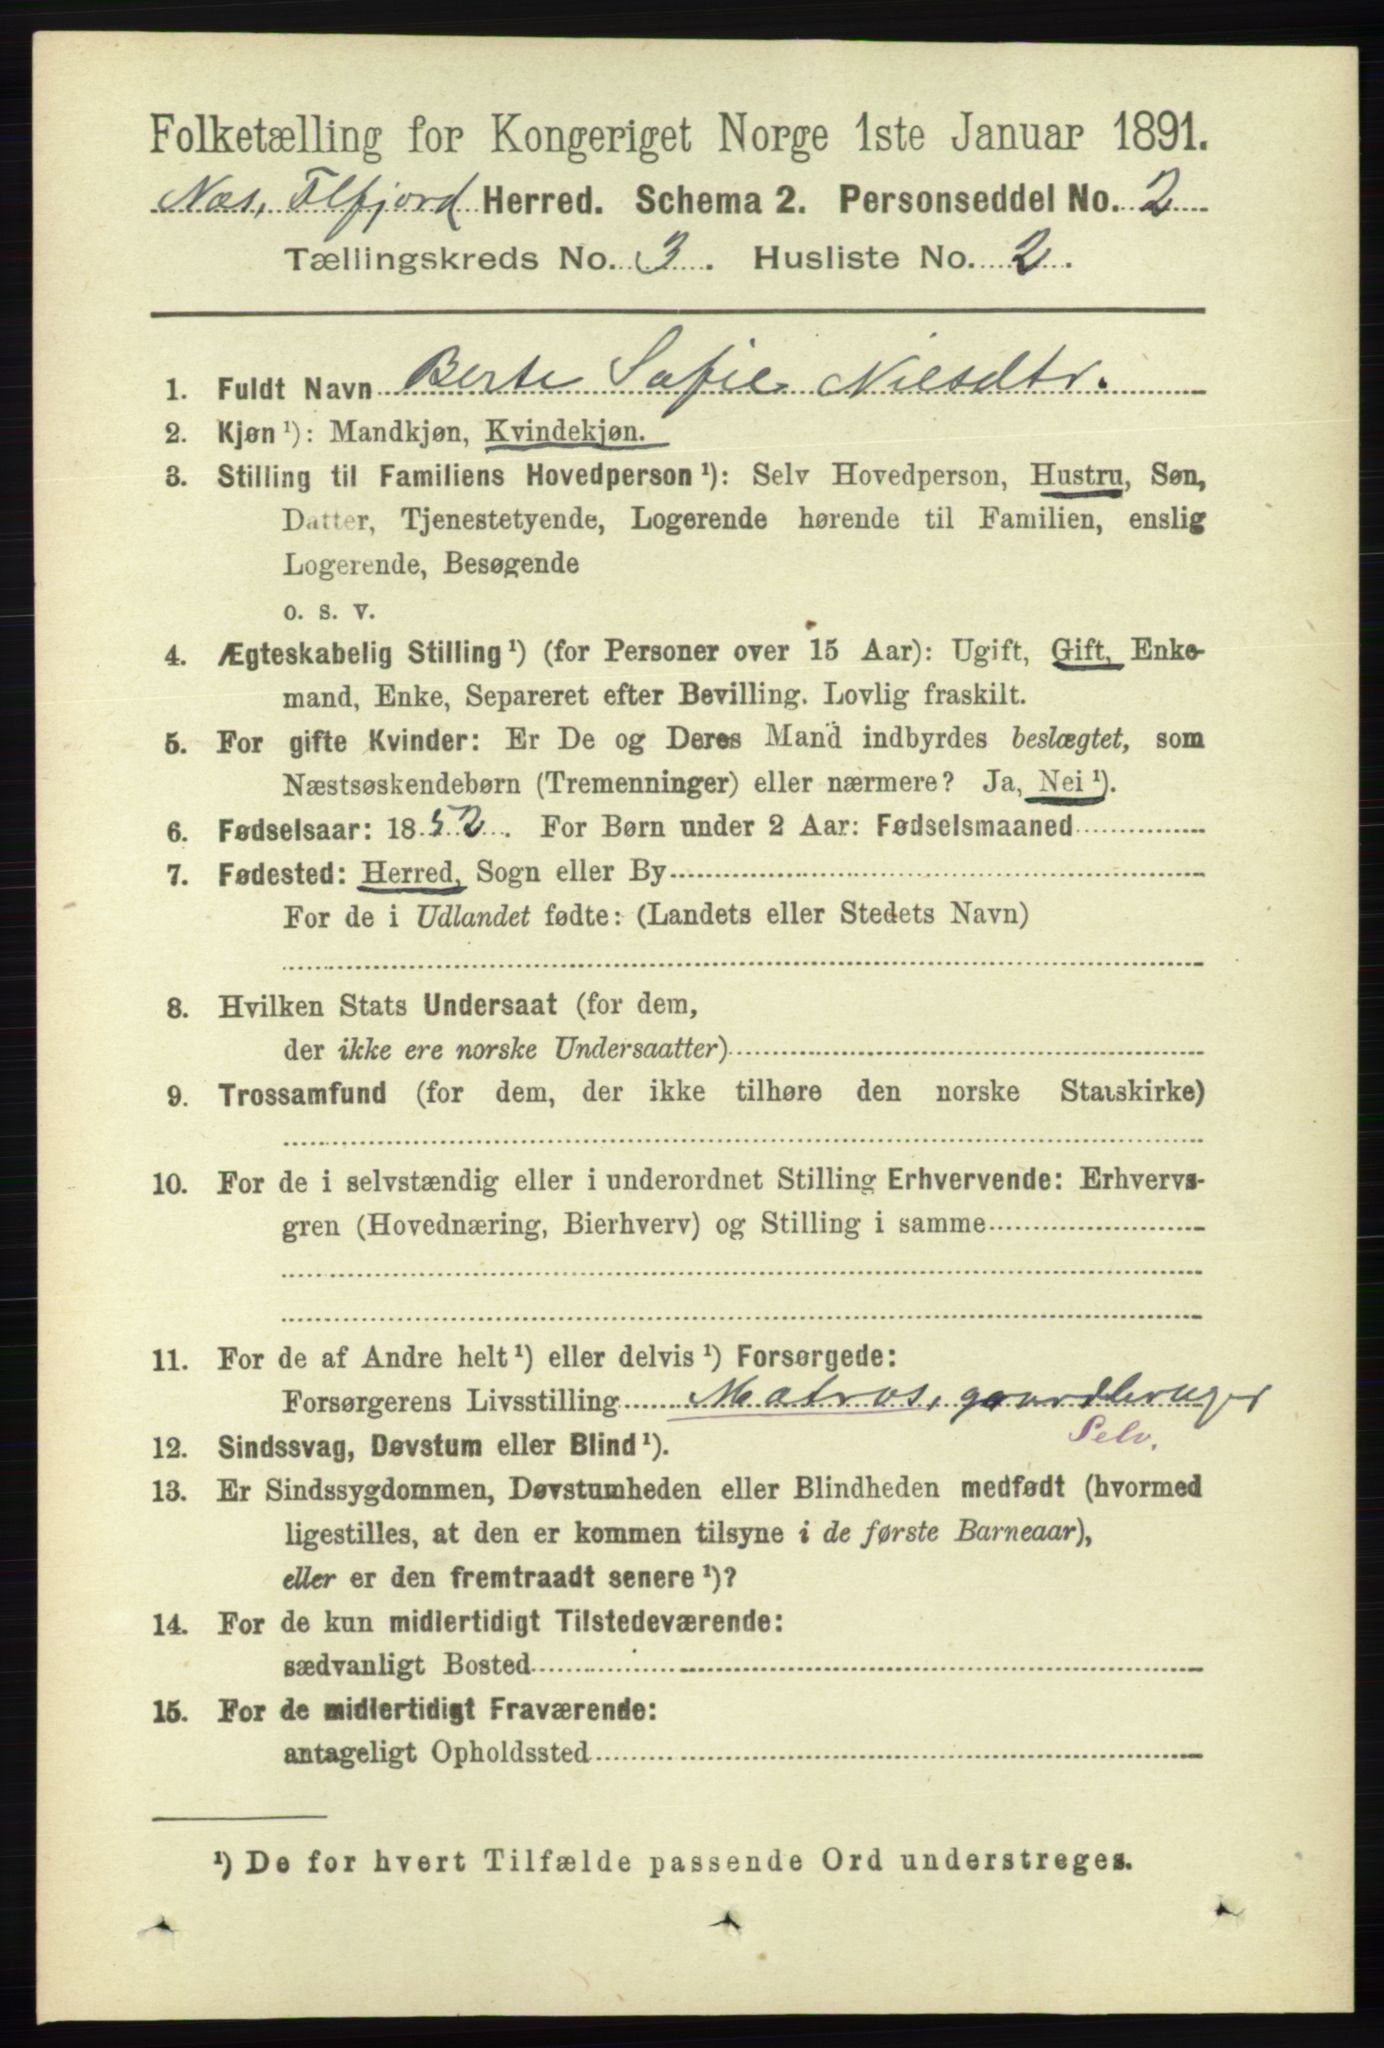 Folketælling for Kongeriget Norge 1ste Januar 1891.
Næs, Flfjord Herred. Schema 2. Personseddel No. 2
Tællingskreds No. 3. Husliste No. 2.
1. Fuldt Navn Berte Sofie Nilsdtr.
2. Kjøn ¹): Mandkjøn, Kvindekjøn.
3. Stilling til Familiens Hovedperson ¹): Selv Hovedperson, Hustru, Søn,
Datter, Tjenestetyende, Logerende hørende til Familien, enslig
Logerende, Besøgende
o. s. v.
4. Ægteskabelig Stilling ¹) (for Personer over 15 Aar): Ugift, Gift, Enke-
mand, Enke, Separeret efter Bevilling. Lovlig fraskilt.
5. For gifte Kvinder: Er De og Deres Mand indbyrdes beslægtet, som
Næstsøskendebørn (Tremenninger) eller nærmere? Ja, Nei ¹).
6. Fødselsaar: 1852. For Børn under 2 Aar: Fødselsmaaned
7. Fødested: Herred, Sogn eller By
For de i Udlandet fødte: (Landets eller Stedets Navn)
8. Hvilken Stats Undersaat (for dem,
der ikke ere norske Undersaatter)
9. Trossamfund (for dem, der ikke tilhøre den norske Statskirke)
10. For de i selvstændig eller i underordnet Stilling Erhvervende: Erhvervs-
gren (Hovednæring, Bierhverv) og Stilling i samme
11. For de af Andre helt ¹) eller delvis ¹) Forsørgede:
Forsørgerens Livsstilling Matros, gaardbruger
Selv.
12. Sindssvag, Døvstum eller Blind ¹).
13. Er Sindssygdommen, Døvstumheden eller Blindheden medfødt (hvormed
ligestilles, at den er kommen tilsyne i de første Barneaar),
eller er den fremtraadt senere ¹)?
14. For de kun midlertidigt Tilstedeværende:
sædvanligt Bosted
15. For de midlertidigt Fraværende:
antageligt Opholdssted
¹) De for hvert Tilfælde passende Ord understreges.